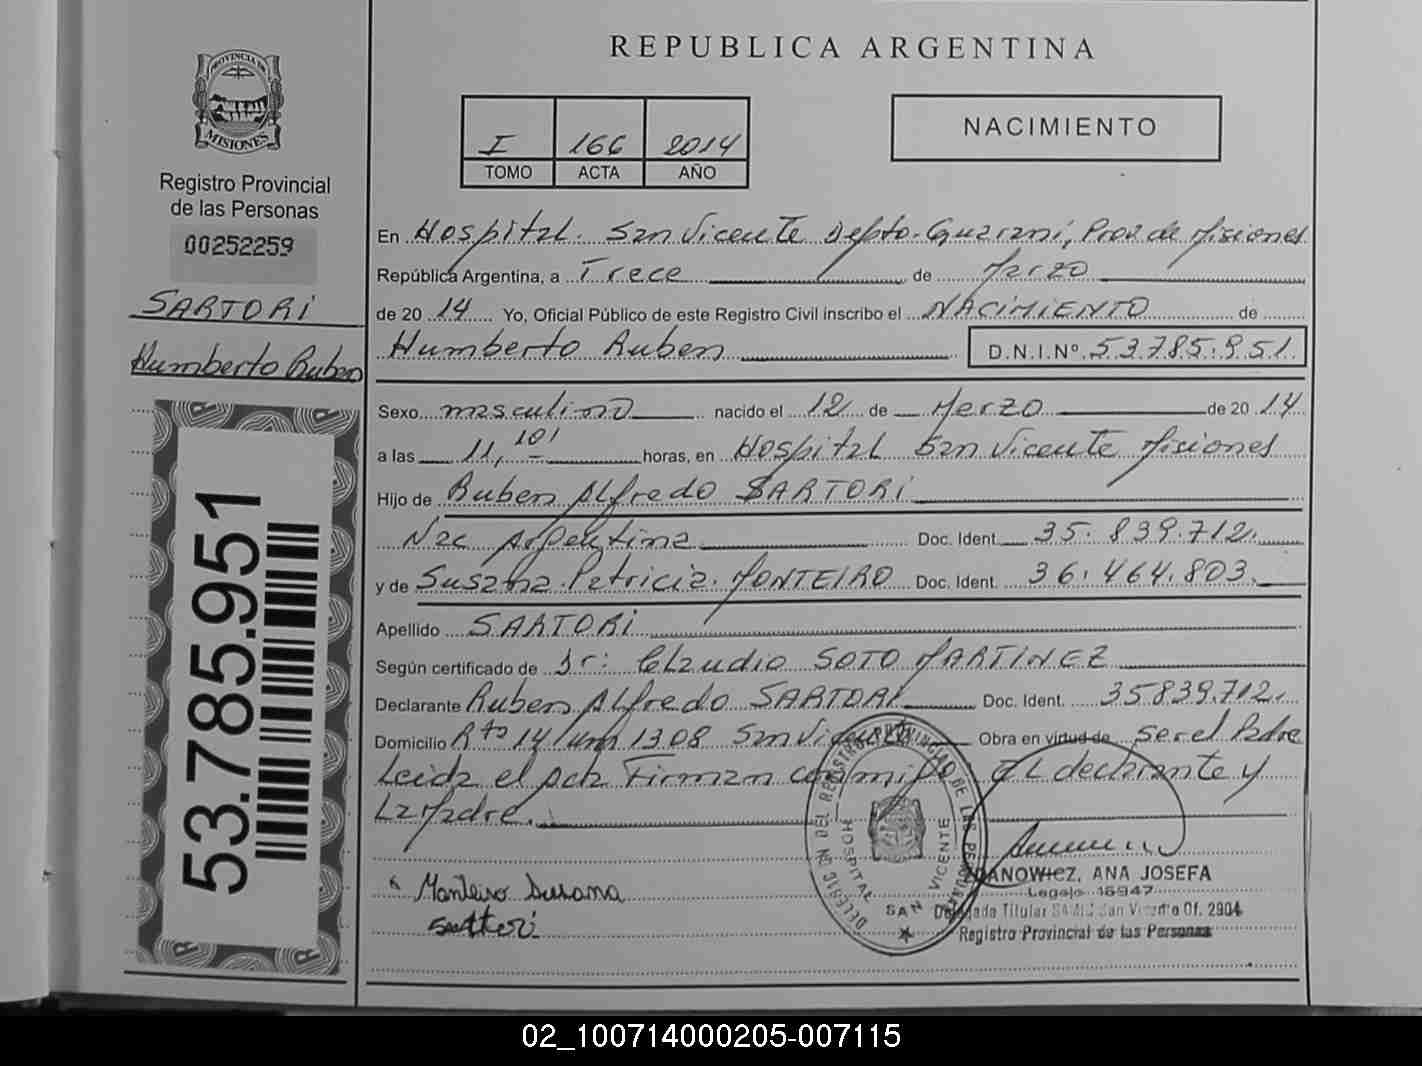 REPUBLICA ARGENTINA
PROVINCIA DE
MISIONES
Registro Provincial
de las Personas
00252259
SARTORI
Humberto Ruben
53.785.951
I 166 2014
TOMO ACTA AÑO
NACIMIENTO
En Hospital San Vicente Depto. Guarani, Prov. de Misiones
República Argentina, a Trece de Marzo
de 2014 Yo, Oficial Público de este Registro Civil inscribo el NACIMIENTO de
Humberto Ruben D.N.I.Nº 53.785.951
Sexo masculino nacido el 12 de Marzo de 2014
a las 11,10' horas, en Hospital San Vicente Misiones
Hijo de Ruben Alfredo SARTORI
Nac Argentina Doc. Ident. 35.839.712
y de Susana Patricia MONTEIRO Doc. Ident. 36.464.803
Apellido SARTORI
Según certificado de Dr: Claudio SOTO MARTINEZ
Declarante Ruben Alfredo SARTORI Doc. Ident. 35839.712
Domicilio Rta 14 km 1308 San Vicente Obra en virtud de ser el Padre
Leida el acta Firman conmigo El declarante y
La Madre.
Monteiro Susana
Sartori
HOSPITAL
SAN VICENTE
ZDANOWICZ, ANA JOSEFA
Legajo 16947
Delegada Titular San Vicente Of. 2904
Registro Provincial de las Personas
02_100714000205-007115